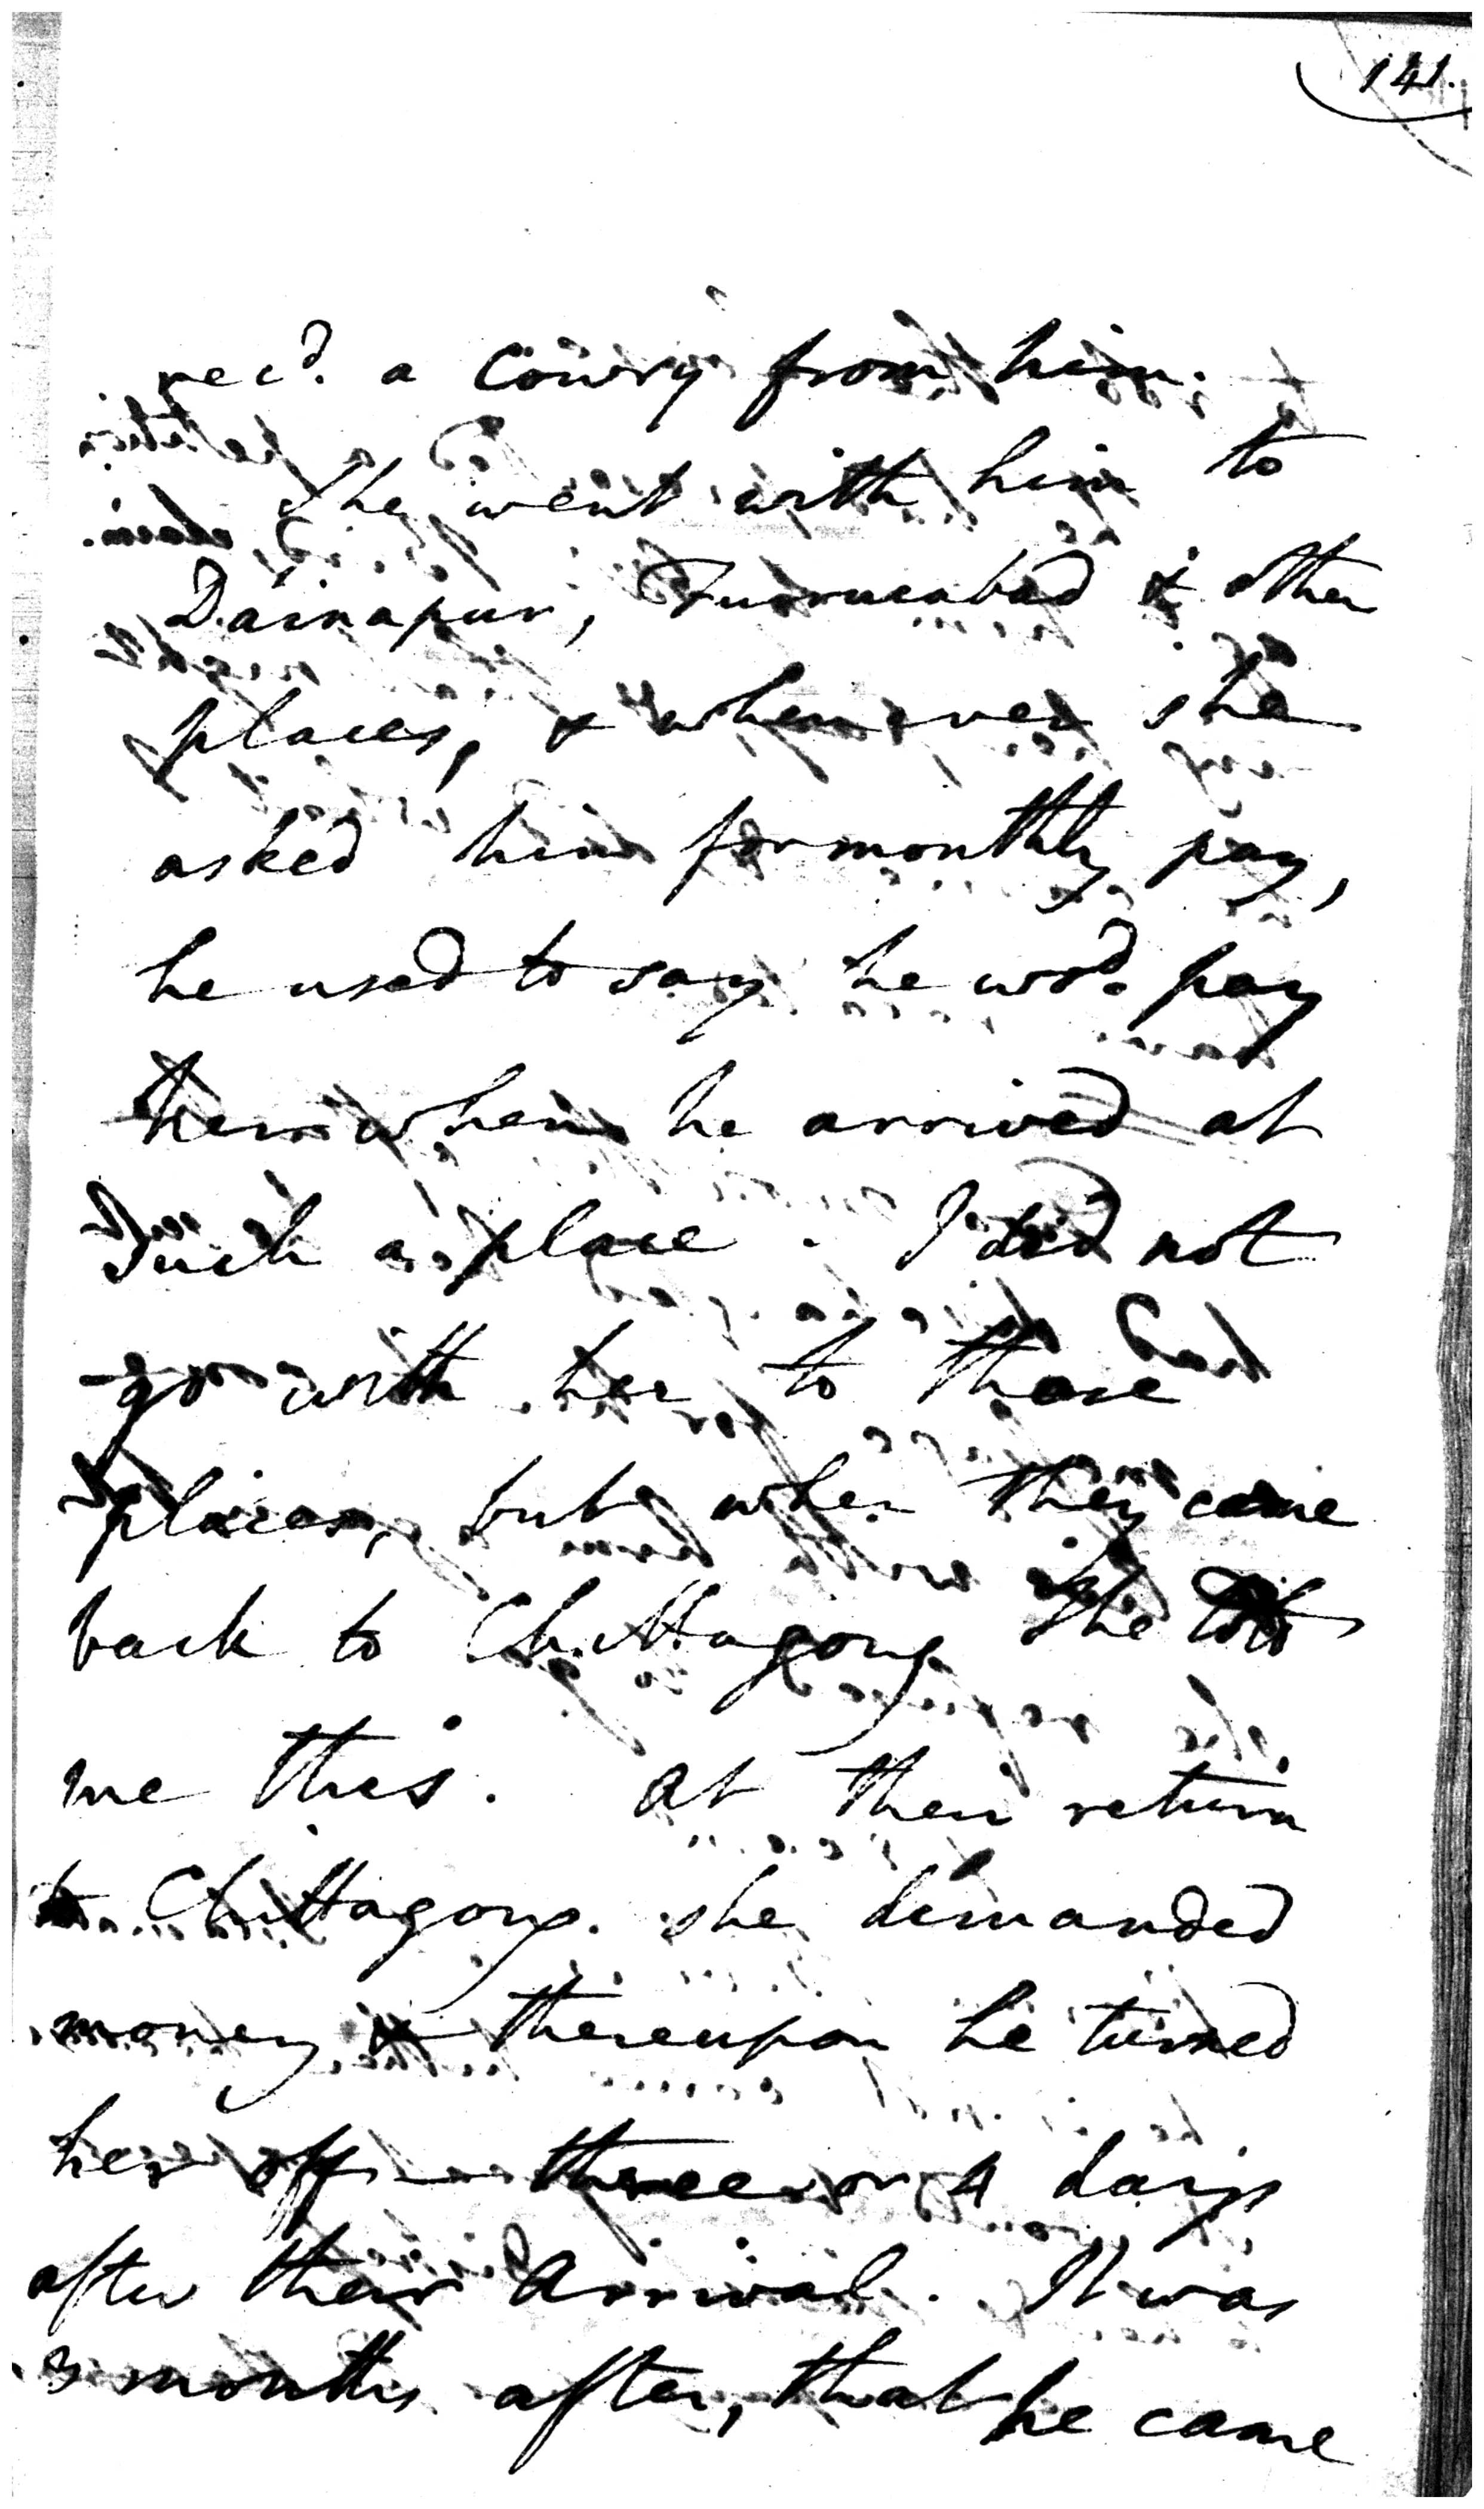 141.
recd. a Cowry from him.
She went with him to
Dainapur, Furrucabad & other
places, & whenever she
asked him for monthly pay,
he used to say he wod. pay
them when he arrived at
Such a place. I did not
go with her to those
places, but when they came
back to Chittagong She told
me this. At their return
to Chittagong she demanded
money & thereupon he turned
her off three or 4 days
after their Arrival. It was
3 months after, that he came